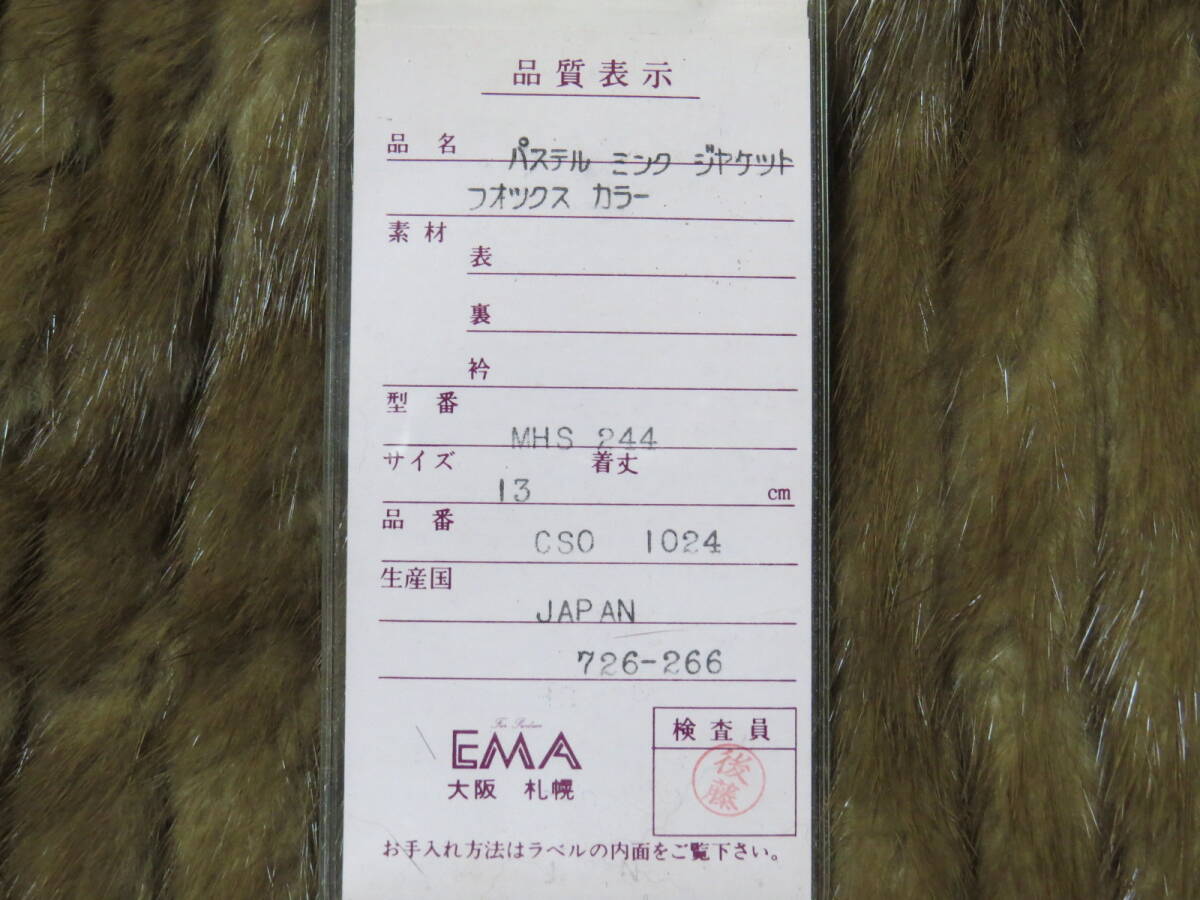 品質表示
品名 パステル ミンク ジヤケット
フオツクス カラー
素材
表
裏
衿
型番 MHS 244
サイズ 13 着丈 cm
品番 CSO 1024
生産国 JAPAN
726-266
EMA
大阪 札幌
検査員
後藤
お手入れ方法はラベルの内面をご覧下さい。